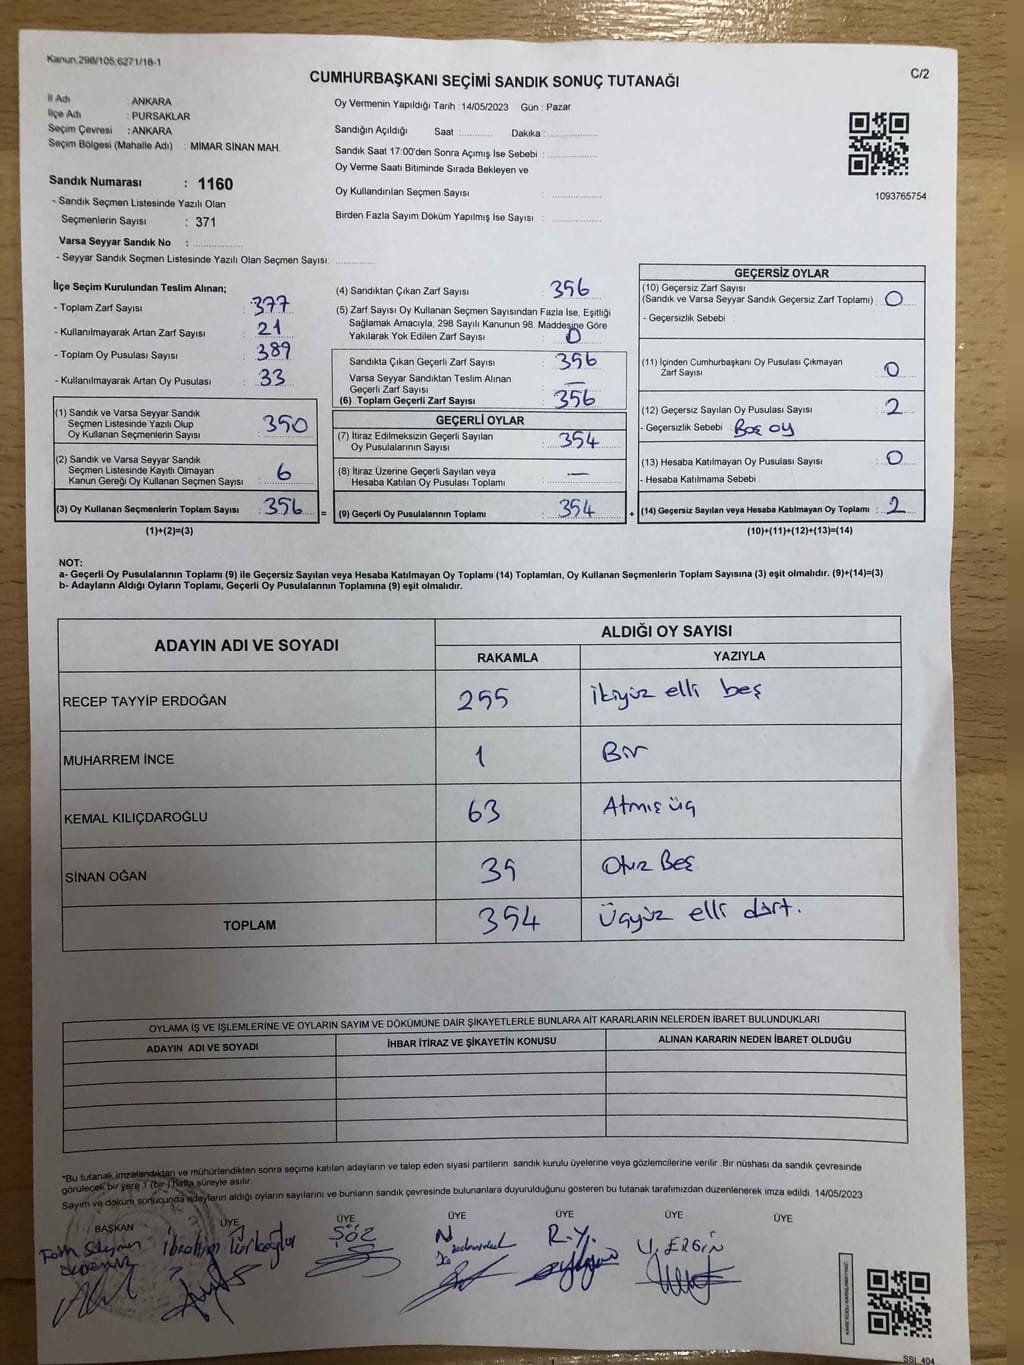 Kanun.298/105,6271/18-1
C/2
CUMHURBAŞKANI SEÇİMİ SANDIK SONUÇ TUTANAĞI
İl Adı : ANKARA
İlçe Adı : PURSAKLAR
Seçim Çevresi : ANKARA
Seçim Bölgesi (Mahalle Adı) : MİMAR SİNAN MAH.
Oy Vermenin Yapıldığı Tarih : 14/05/2023 Gün : Pazar
Sandığın Açıldığı Saat : Dakika :
Sandık Saat 17:00'den Sonra Açımış İse Sebebi :
Oy Verme Saati Bitiminde Sırada Bekleyen ve
Oy Kullandırılan Seçmen Sayısı :
Birden Fazla Sayım Döküm Yapılmış İse Sayısı :
1093765754
Sandık Numarası : 1160
- Sandık Seçmen Listesinde Yazılı Olan
Seçmenlerin Sayısı : 371
Varsa Seyyar Sandık No :
- Seyyar Sandık Seçmen Listesinde Yazılı Olan Seçmen Sayısı:
İlçe Seçim Kurulundan Teslim Alınan;
- Toplam Zarf Sayısı : 377
- Kullanılmayarak Artan Zarf Sayısı : 21
- Toplam Oy Pusulası Sayısı : 389
- Kullanılmayarak Artan Oy Pusulası : 33
(1) Sandık ve Varsa Seyyar Sandık
Seçmen Listesinde Yazılı Olup
Oy Kullanan Seçmenlerin Sayısı : 350
(2) Sandık ve Varsa Seyyar Sandık
Seçmen Listesinde Kayıtlı Olmayan
Kanun Gereği Oy Kullanan Seçmen Sayısı : 6
(3) Oy Kullanan Seçmenlerin Toplam Sayısı : 356 =
(1)+(2)=(3)
(4) Sandıktan Çıkan Zarf Sayısı : 356
(5) Zarf Sayısı Oy Kullanan Seçmen Sayısından Fazla İse, Eşitliği
Sağlamak Amacıyla, 298 Sayılı Kanunun 98. Maddesine Göre
Yakılarak Yok Edilen Zarf Sayısı : 0
Sandıkta Çıkan Geçerli Zarf Sayısı : 356
Varsa Seyyar Sandıktan Teslim Alınan
Geçerli Zarf Sayısı : —
(6) Toplam Geçerli Zarf Sayısı : 356
GEÇERLİ OYLAR
(7) İtiraz Edilmeksizin Geçerli Sayılan
Oy Pusulalarının Sayısı : 354
(8) İtiraz Üzerine Geçerli Sayılan veya
Hesaba Katılan Oy Pusulası Toplamı : —
(9) Geçerli Oy Pusulalarının Toplamı : 354 +
GEÇERSİZ OYLAR
(10) Geçersiz Zarf Sayısı
(Sandık ve Varsa Seyyar Sandık Geçersiz Zarf Toplamı) : 0
- Geçersizlik Sebebi :
(11) İçinden Cumhurbaşkanı Oy Pusulası Çıkmayan
Zarf Sayısı : 0
(12) Geçersiz Sayılan Oy Pusulası Sayısı : 2
- Geçersizlik Sebebi : Boş oy
(13) Hesaba Katılmayan Oy Pusulası Sayısı : 0
- Hesaba Katılmama Sebebi :
(14) Geçersiz Sayılan veya Hesaba Katılmayan Oy Toplamı : 2
(10)+(11)+(12)+(13)=(14)
NOT:
a- Geçerli Oy Pusulalarının Toplamı (9) ile Geçersiz Sayılan veya Hesaba Katılmayan Oy Toplamı (14) Toplamları, Oy Kullanan Seçmenlerin Toplam Sayısına (3) eşit olmalıdır. (9)+(14)=(3)
b- Adayların Aldığı Oyların Toplamı, Geçerli Oy Pusulalarının Toplamına (9) eşit olmalıdır.
ADAYIN ADI VE SOYADI ALDIĞI OY SAYISI
RAKAMLA YAZIYLA
RECEP TAYYİP ERDOĞAN 255 İkiyüz elli beş
MUHARREM İNCE 1 Bir
KEMAL KILIÇDAROĞLU 63 Atmış üç
SİNAN OĞAN 35 Otuz Beş
TOPLAM 354 Üçyüz elli dört.
OYLAMA İŞ VE İŞLEMLERİNE VE OYLARIN SAYIM VE DÖKÜMÜNE DAİR ŞİKAYETLERLE BUNLARA AİT KARARLARIN NELERDEN İBARET BULUNDUKLARI
ADAYIN ADI VE SOYADI İHBAR İTİRAZ VE ŞİKAYETİN KONUSU ALINAN KARARIN NEDEN İBARET OLDUĞU
"Bu tutanak imzalandıktan ve mühürlendikten sonra seçime katılan adayların ve talep eden siyasi partilerin sandık kurulu üyelerine veya gözlemcilerine verilir .Bir nüshası da sandık çevresinde
görülecek bir yere 1 (bir ) hafta süreyle asılır.
Sayım ve döküm sonucunda adayların aldığı oyların sayılarını ve bunların sandık çevresinde bulunanlara duyurulduğunu gösteren bu tutanak tarafımızdan düzenlenerek imza edildi. 14/05/2023
BAŞKAN ÜYE ÜYE ÜYE ÜYE ÜYE ÜYE
İbrahim Türkoğlu
R.Y.
U. ERGİN
SSI_404